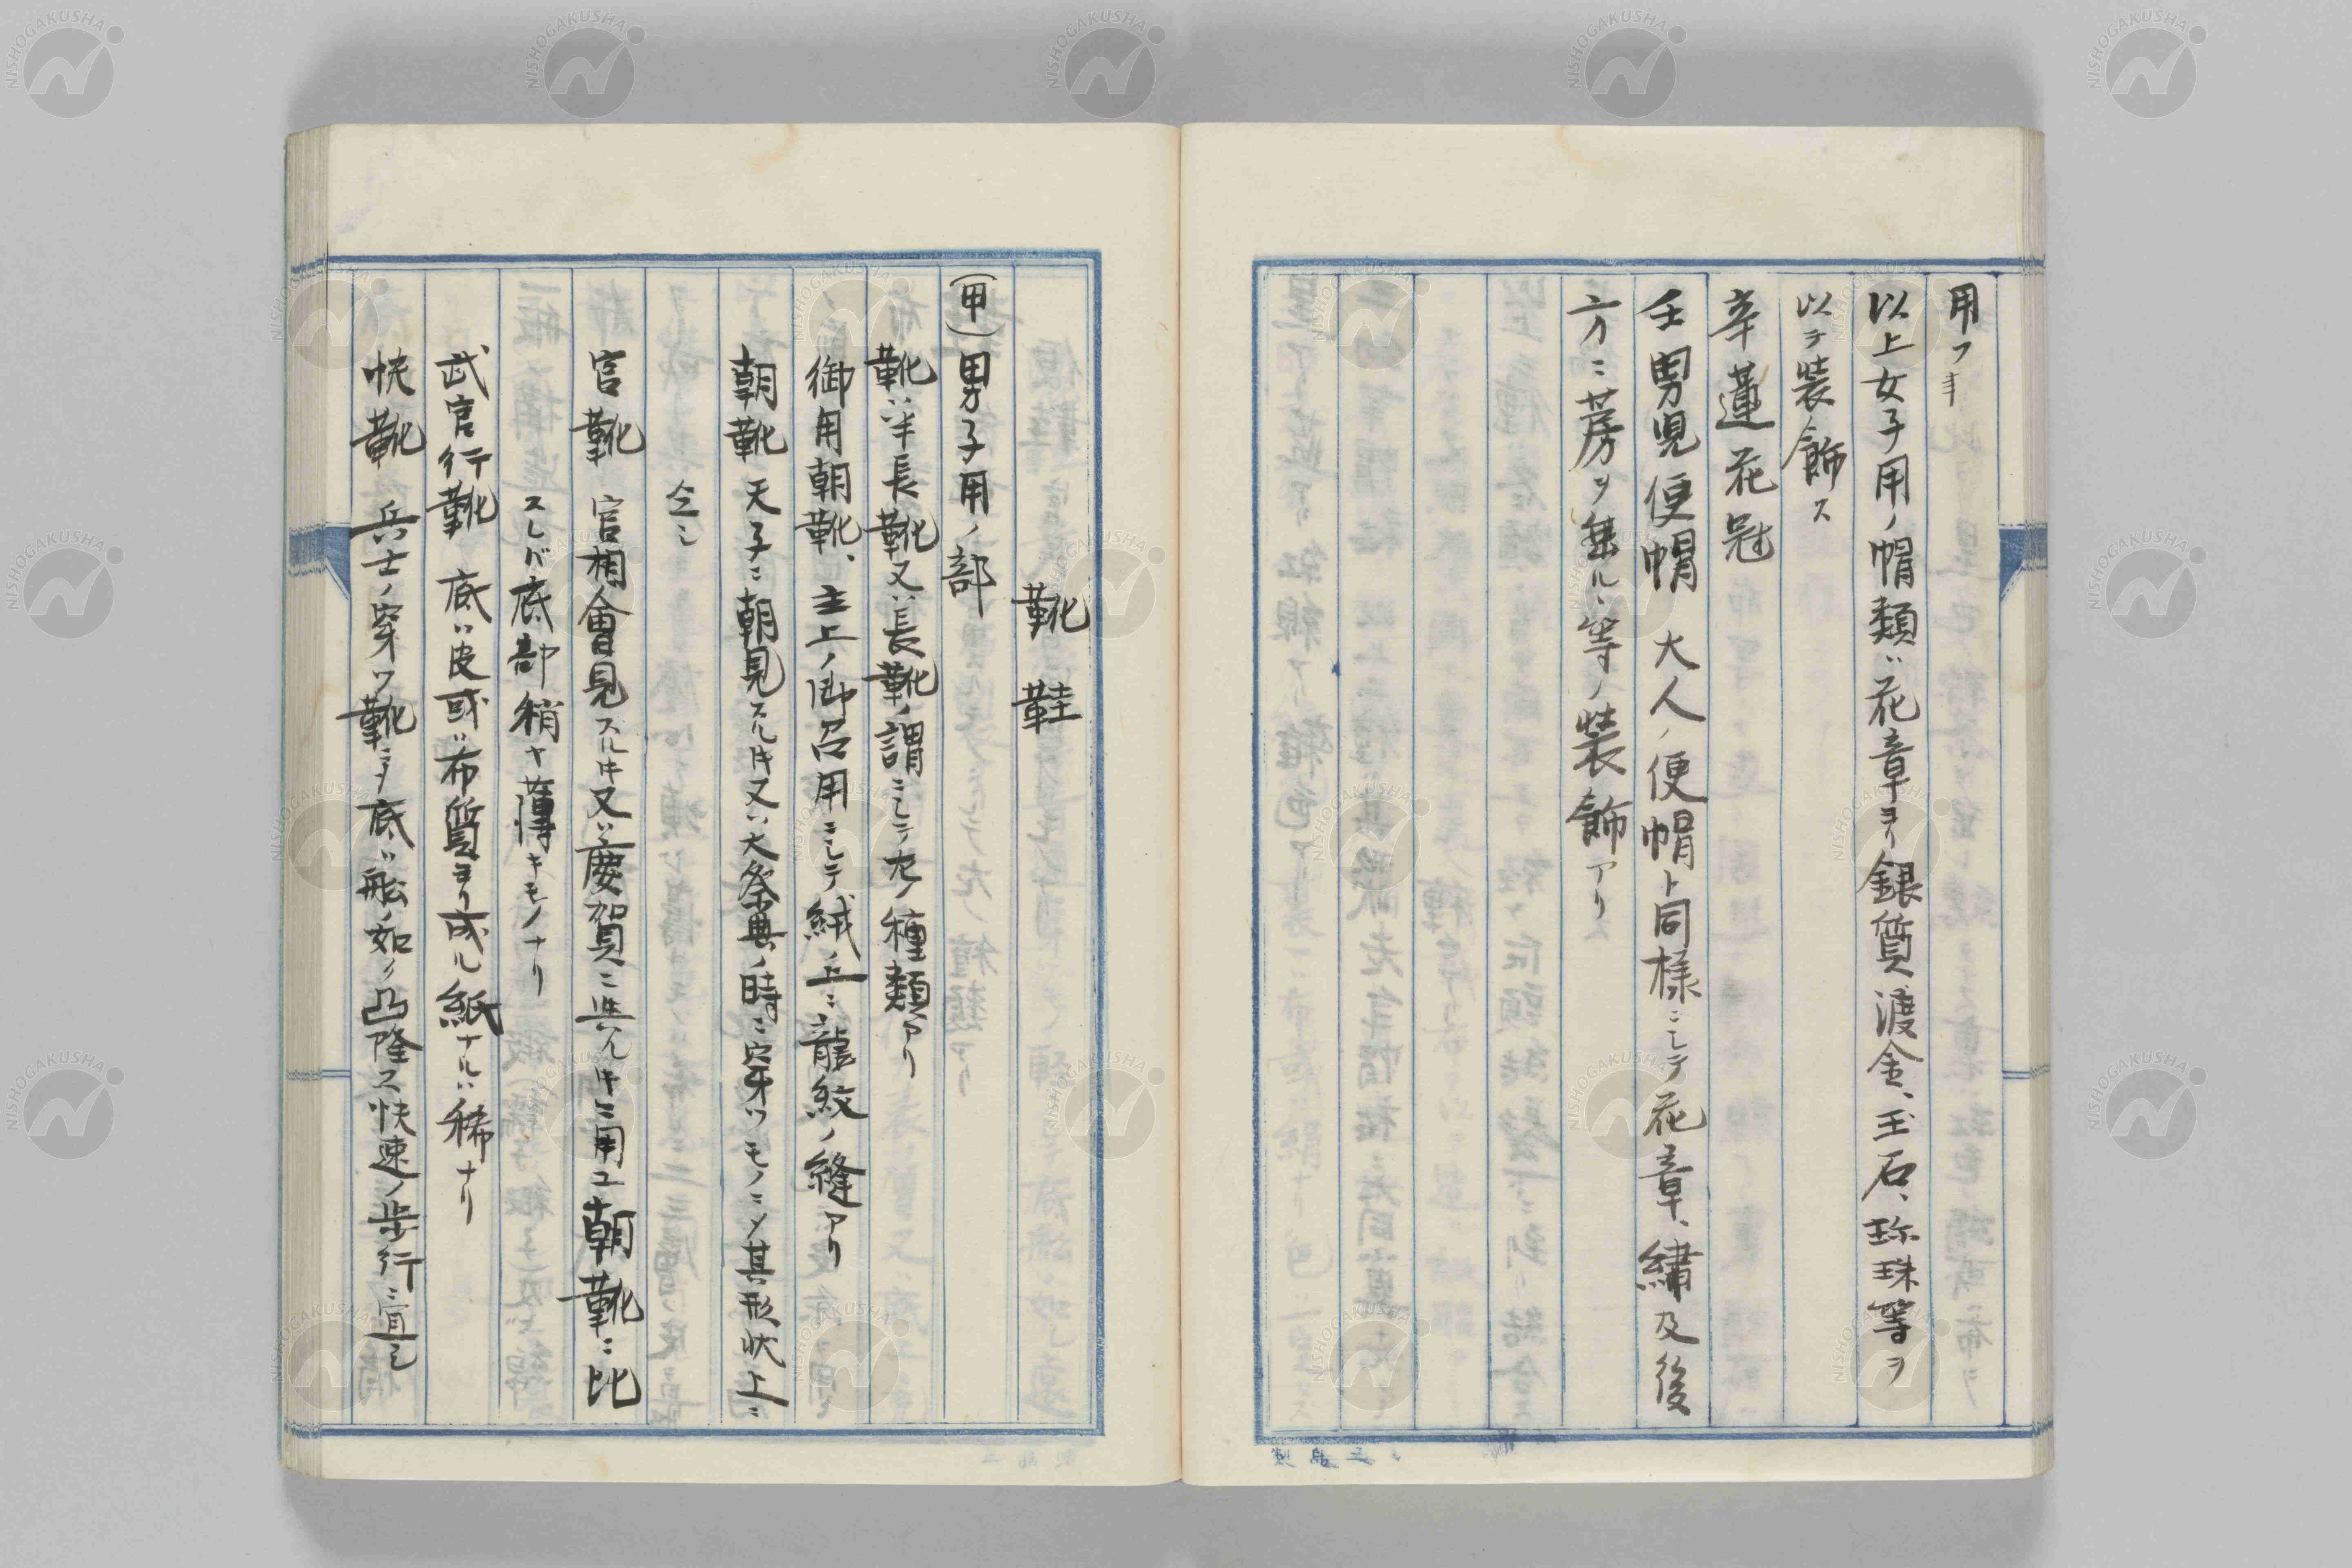 用フ
以上女子用ノ帽類ハ花章ヨリ銀質渡金、玉石、珎珠等ヲ
以テ装飾ス
辛 蓮花冠
壬 男児便帽 大人ノ便帽ト同様ニシテ花章、繡及後
方ニ 等ノ装飾アリ
靴 鞋
(甲)男子用ノ部
靴ハ半長靴又ハ長靴ノ謂ニシテ左ノ種類アリ
御用朝靴、主上ノ御召用ニシテ絨ノ上ニ龍紋ノ縫アリ
朝靴 天子ニ朝見スル時又ハ大祭典ノ時ニ穿ツモノニシテ其形状上ニ
仝シ
官靴 官相會見スル時又ハ慶賀ニ與ル時ニ用ユ朝靴ニ比
スレバ底部稍ヤ薄キモノナリ
武官行靴 底ハ皮或ハ布質ヨリ成ル紙ナルハ稀ナリ
快靴 兵士ノ穿ツ靴ニシテ底ハ船ノ如ク凸隆ス快速ノ歩行ニ宜シ